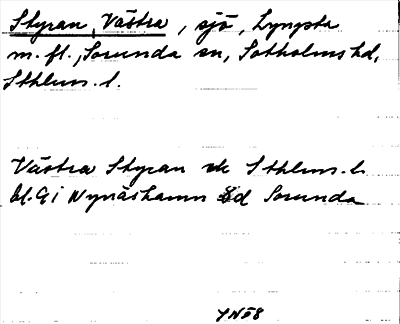 Styran, Västra, sjö, Lyngsta
m.fl., Sorunda sn, Sotholms hd,
Sthlms. l.
Västra Styran vk Sthlms. l.
bl. G i Nynäshamn Sorunda